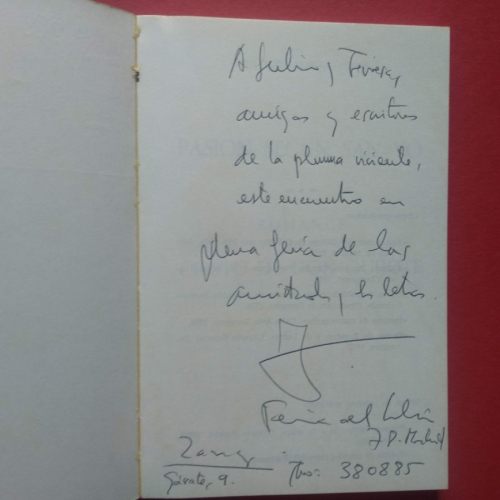 A Julia y Teresa,
amigos y escritores
de la pluma
este encuentro en
plena feria de las
amistades y las letras.
Feria del Libro
Madrid
Zarate, 9. Tno: 380885